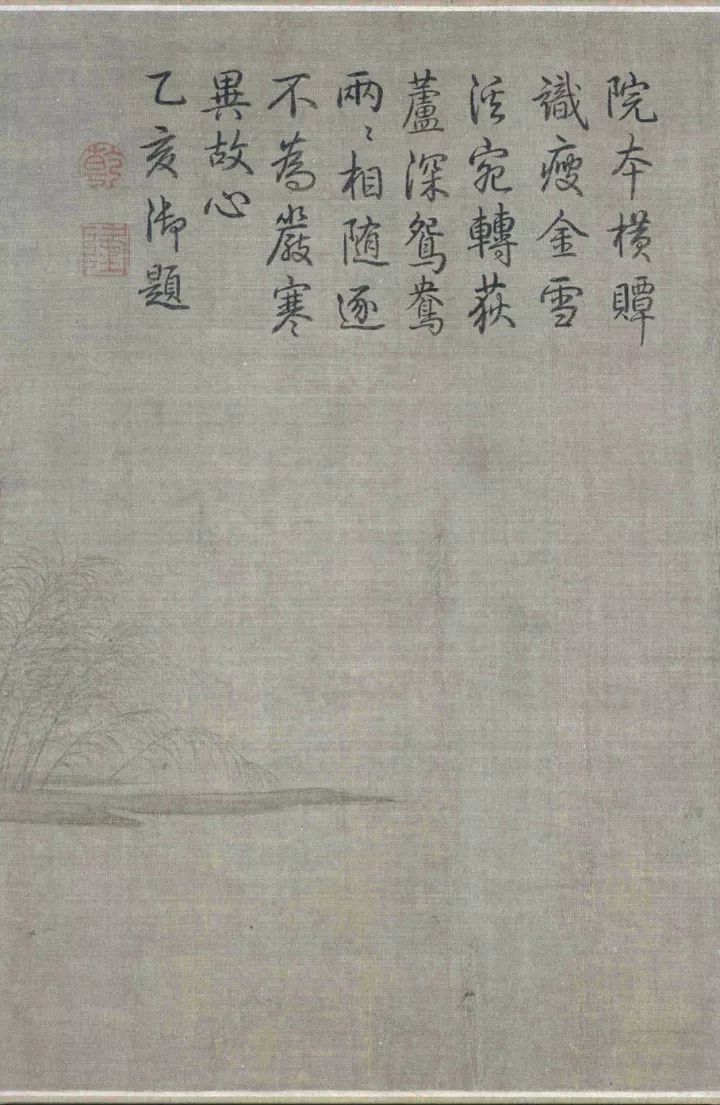 院本橫贉
識瘦金雪
溪宛轉荻
蘆深鴛鴦
兩〻相随逐
不為嚴寒
異故心
乙亥御題
乾
隆